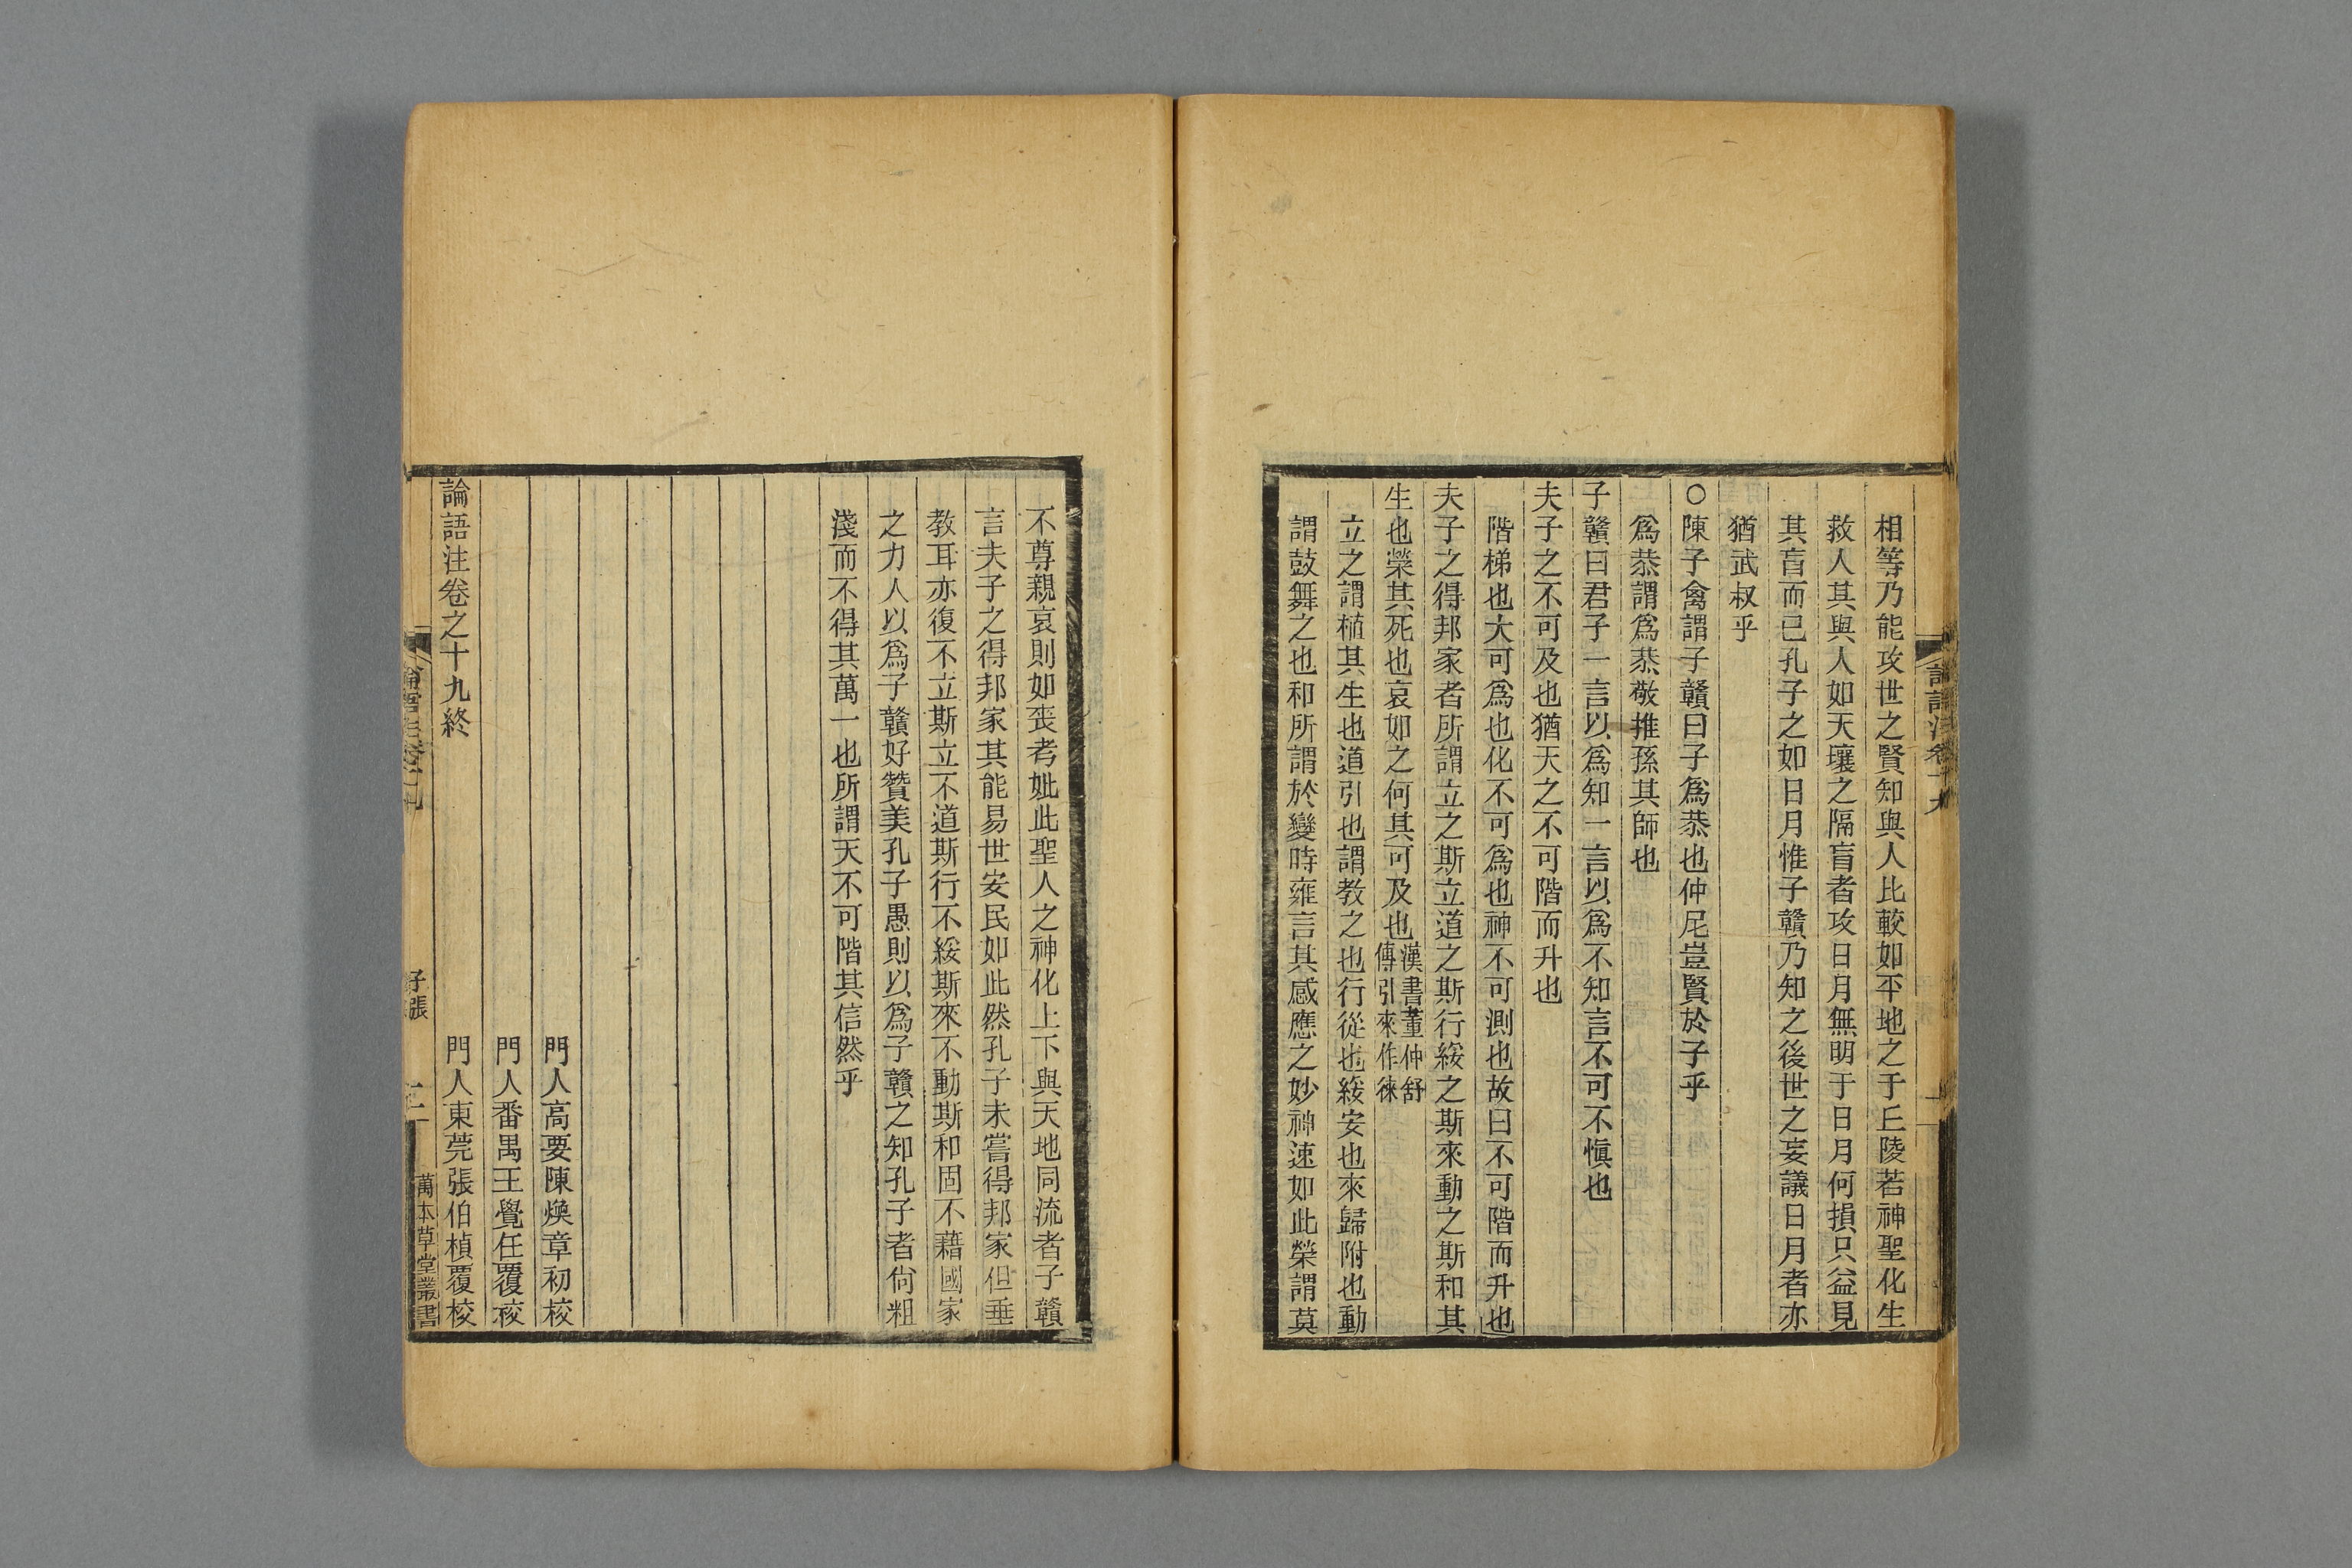 相等乃能攻世之賢知與人比較如平地之于丘陵若神聖化生
救人其與人如天壤之隔盲者攻日月無明于日月何損只益見
其盲而已孔子之如日月惟子贛乃知之後世之妄議日月者亦
猶武叔乎
○陳子禽謂子贛曰子爲恭也仲尼豈賢於子乎
爲恭謂爲恭敬推孫其師也
子贛曰君子一言以爲知一言以爲不知言不可不愼也
夫子之不可及也猶天之不可階而升也
階梯也大可爲也化不可爲也神不可測也故曰不可階而升也
夫子之得邦家者所謂立之斯立道之斯行綏之斯來動之斯和其
生也榮其死也哀如之何其可及也漢書董仲舒傳引來作徠
立之謂植其生也道引也謂教之也行從也綏安也來歸附也動
謂鼓舞之也和所謂於變時雍言其感應之妙神速如此榮謂莫
不尊親哀則如喪考妣此聖人之神化上下與天地同流者子贛
言夫子之得邦家其能易世安民如此然孔子未嘗得邦家但垂
教耳亦復不立斯立不道斯行不綏斯來不動斯和固不藉國家
之力人以爲子贛好贊美孔子愚則以爲子贛之知孔子者尙粗
淺而不得其萬一也所謂天不可階其信然乎
門人高要陳煥章初校
門人番禺王覺任覆校
論語注卷之十九終 門人東莞張伯楨覆校
論語注卷十九
子張
萬木草堂叢書